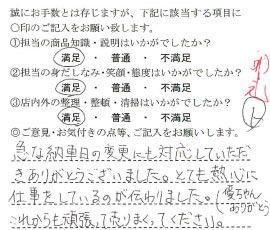 誠にお手数とは存じますが、下記に該当する項目に
○印のご記入をお願い致します。
①担当の商品知識・説明はいかがでしたか?
満足・普通・不満足
②担当の身だしなみ・笑顔・態度はいかがでしたか?
満足・普通・不満足
③店内外の整理・整頓・清掃はいかがでしたか?
満足・普通・不満足
◎ご意見・お気付きの点等、ご記入をお願いします。
急な納車日の変更にも対応していただ
きありがとうございました。とても熱心に
仕事をしているのが伝わりました。(優ちゃん
ありがとう
これからも頑張って下さい。